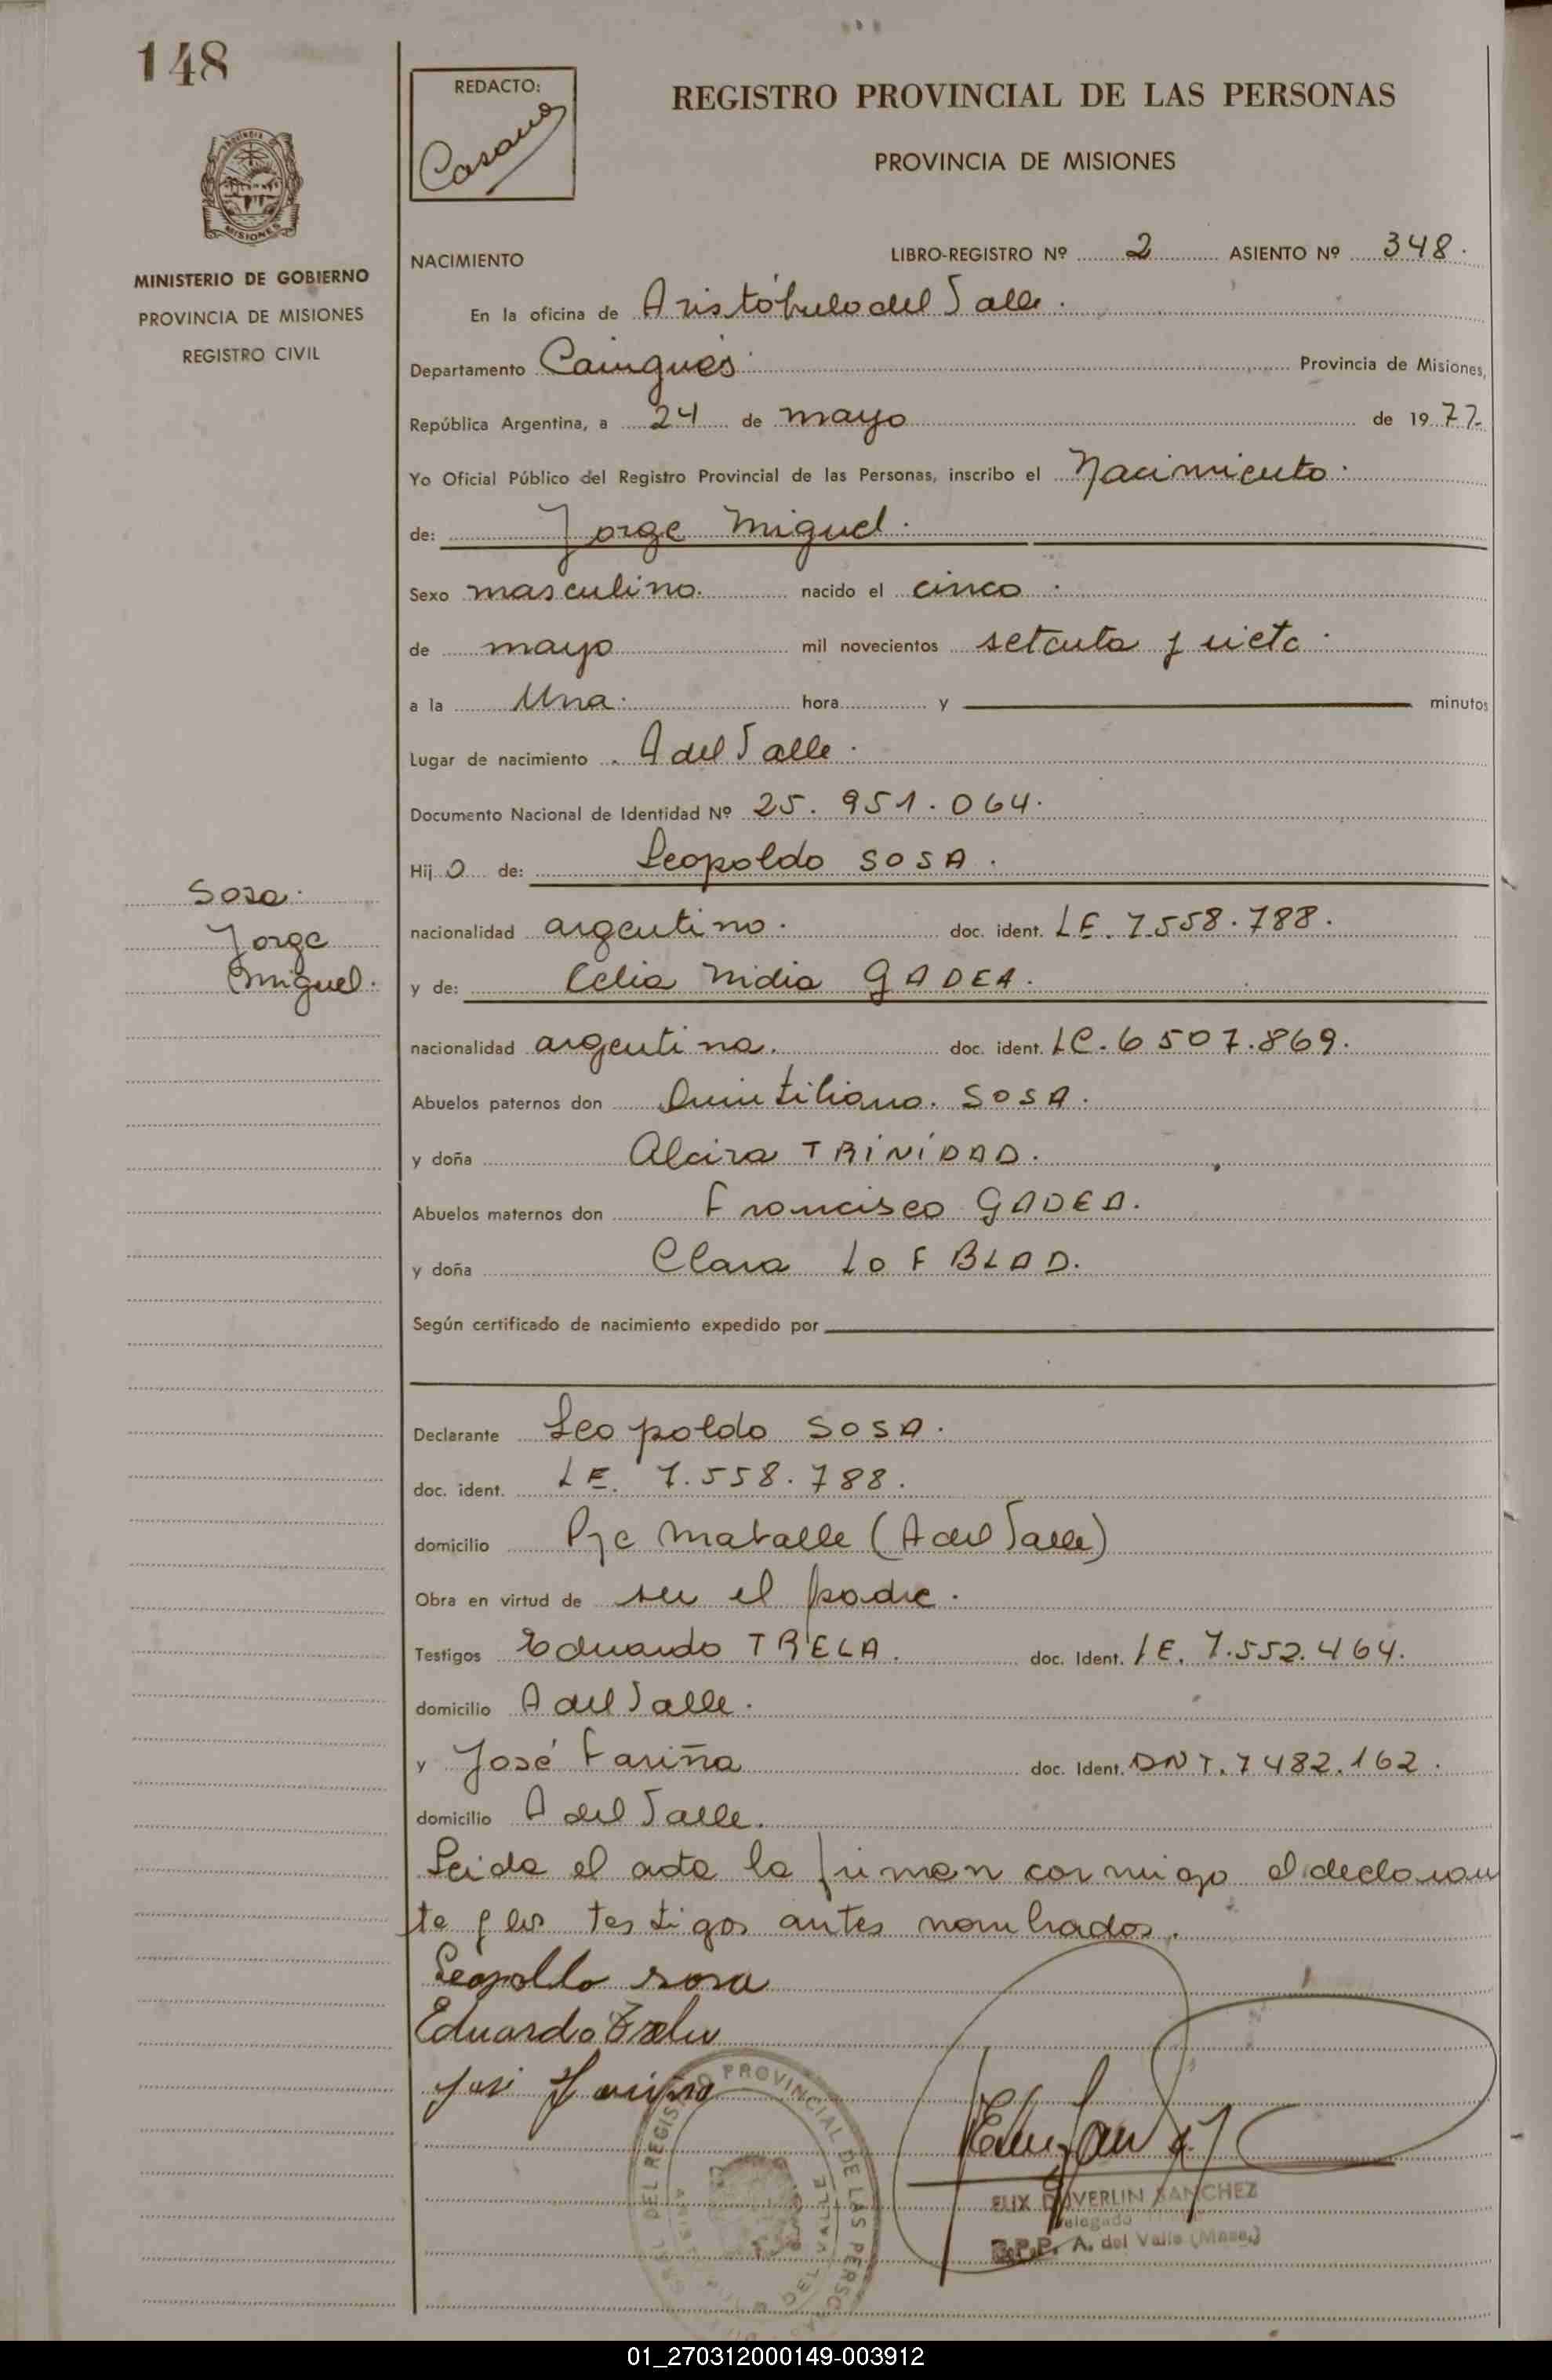 148
REDACTO:
REGISTRO PROVINCIAL DE LAS PERSONAS
PROVINCIA DE MISIONES
MISIONES
MINISTERIO DE GOBIERNO
PROVINCIA DE MISIONES
REGISTRO CIVIL
NACIMIENTO LIBRO-REGISTRO Nº 2 ASIENTO Nº 348.
En la oficina de Aristóbulo del Valle.
Departamento Cainguás Provincia de Misiones,
República Argentina, a 24 de mayo de 1977
Yo Oficial Público del Registro Provincial de las Personas, inscribo el Nacimiento.
de: Jorge Miguel.
Sexo masculino. nacido el cinco.
de mayo mil novecientos setenta y siete.
a la Una. hora y minutos
Lugar de nacimiento A del Valle.
Documento Nacional de Identidad Nº 25.951.064.
Hijo de: Leopoldo SOSA.
Sosa.
Jorge
Miguel.
nacionalidad argentino. doc. ident. LE. 7.558.788.
y de: Celia Nidia GADEA.
nacionalidad argentina. doc. ident. LC. 6507.869.
Abuelos paternos don Quintiliano. SOSA.
y doña Alcira TRINIDAD.
Abuelos maternos don Francisco GADEA.
y doña Clara LOFBLAD.
Según certificado de nacimiento expedido por
Declarante Leopoldo SOSA.
doc. ident. LE. 7.558.788.
domicilio Pje (A del Valle)
Obra en virtud de ser el padre.
Testigos Eduardo TRELA. doc. Ident. LE. 7.552.464.
domicilio A del Valle.
y José Fariña doc. Ident. DNI. 7482.162.
domicilio A del Valle.
Leida el acta la firman conmigo el declaran
te y los testigos antes nombrados.
Leopoldo sosa
Eduardo Trela
José Fariña
DEL REGISTRO PROVINCIAL DE LAS PERSONAS
DEL VALLE
SANCHEZ
Delegado
R.P.P. A. del Valle (Mnes.)
01_270312000149-003912